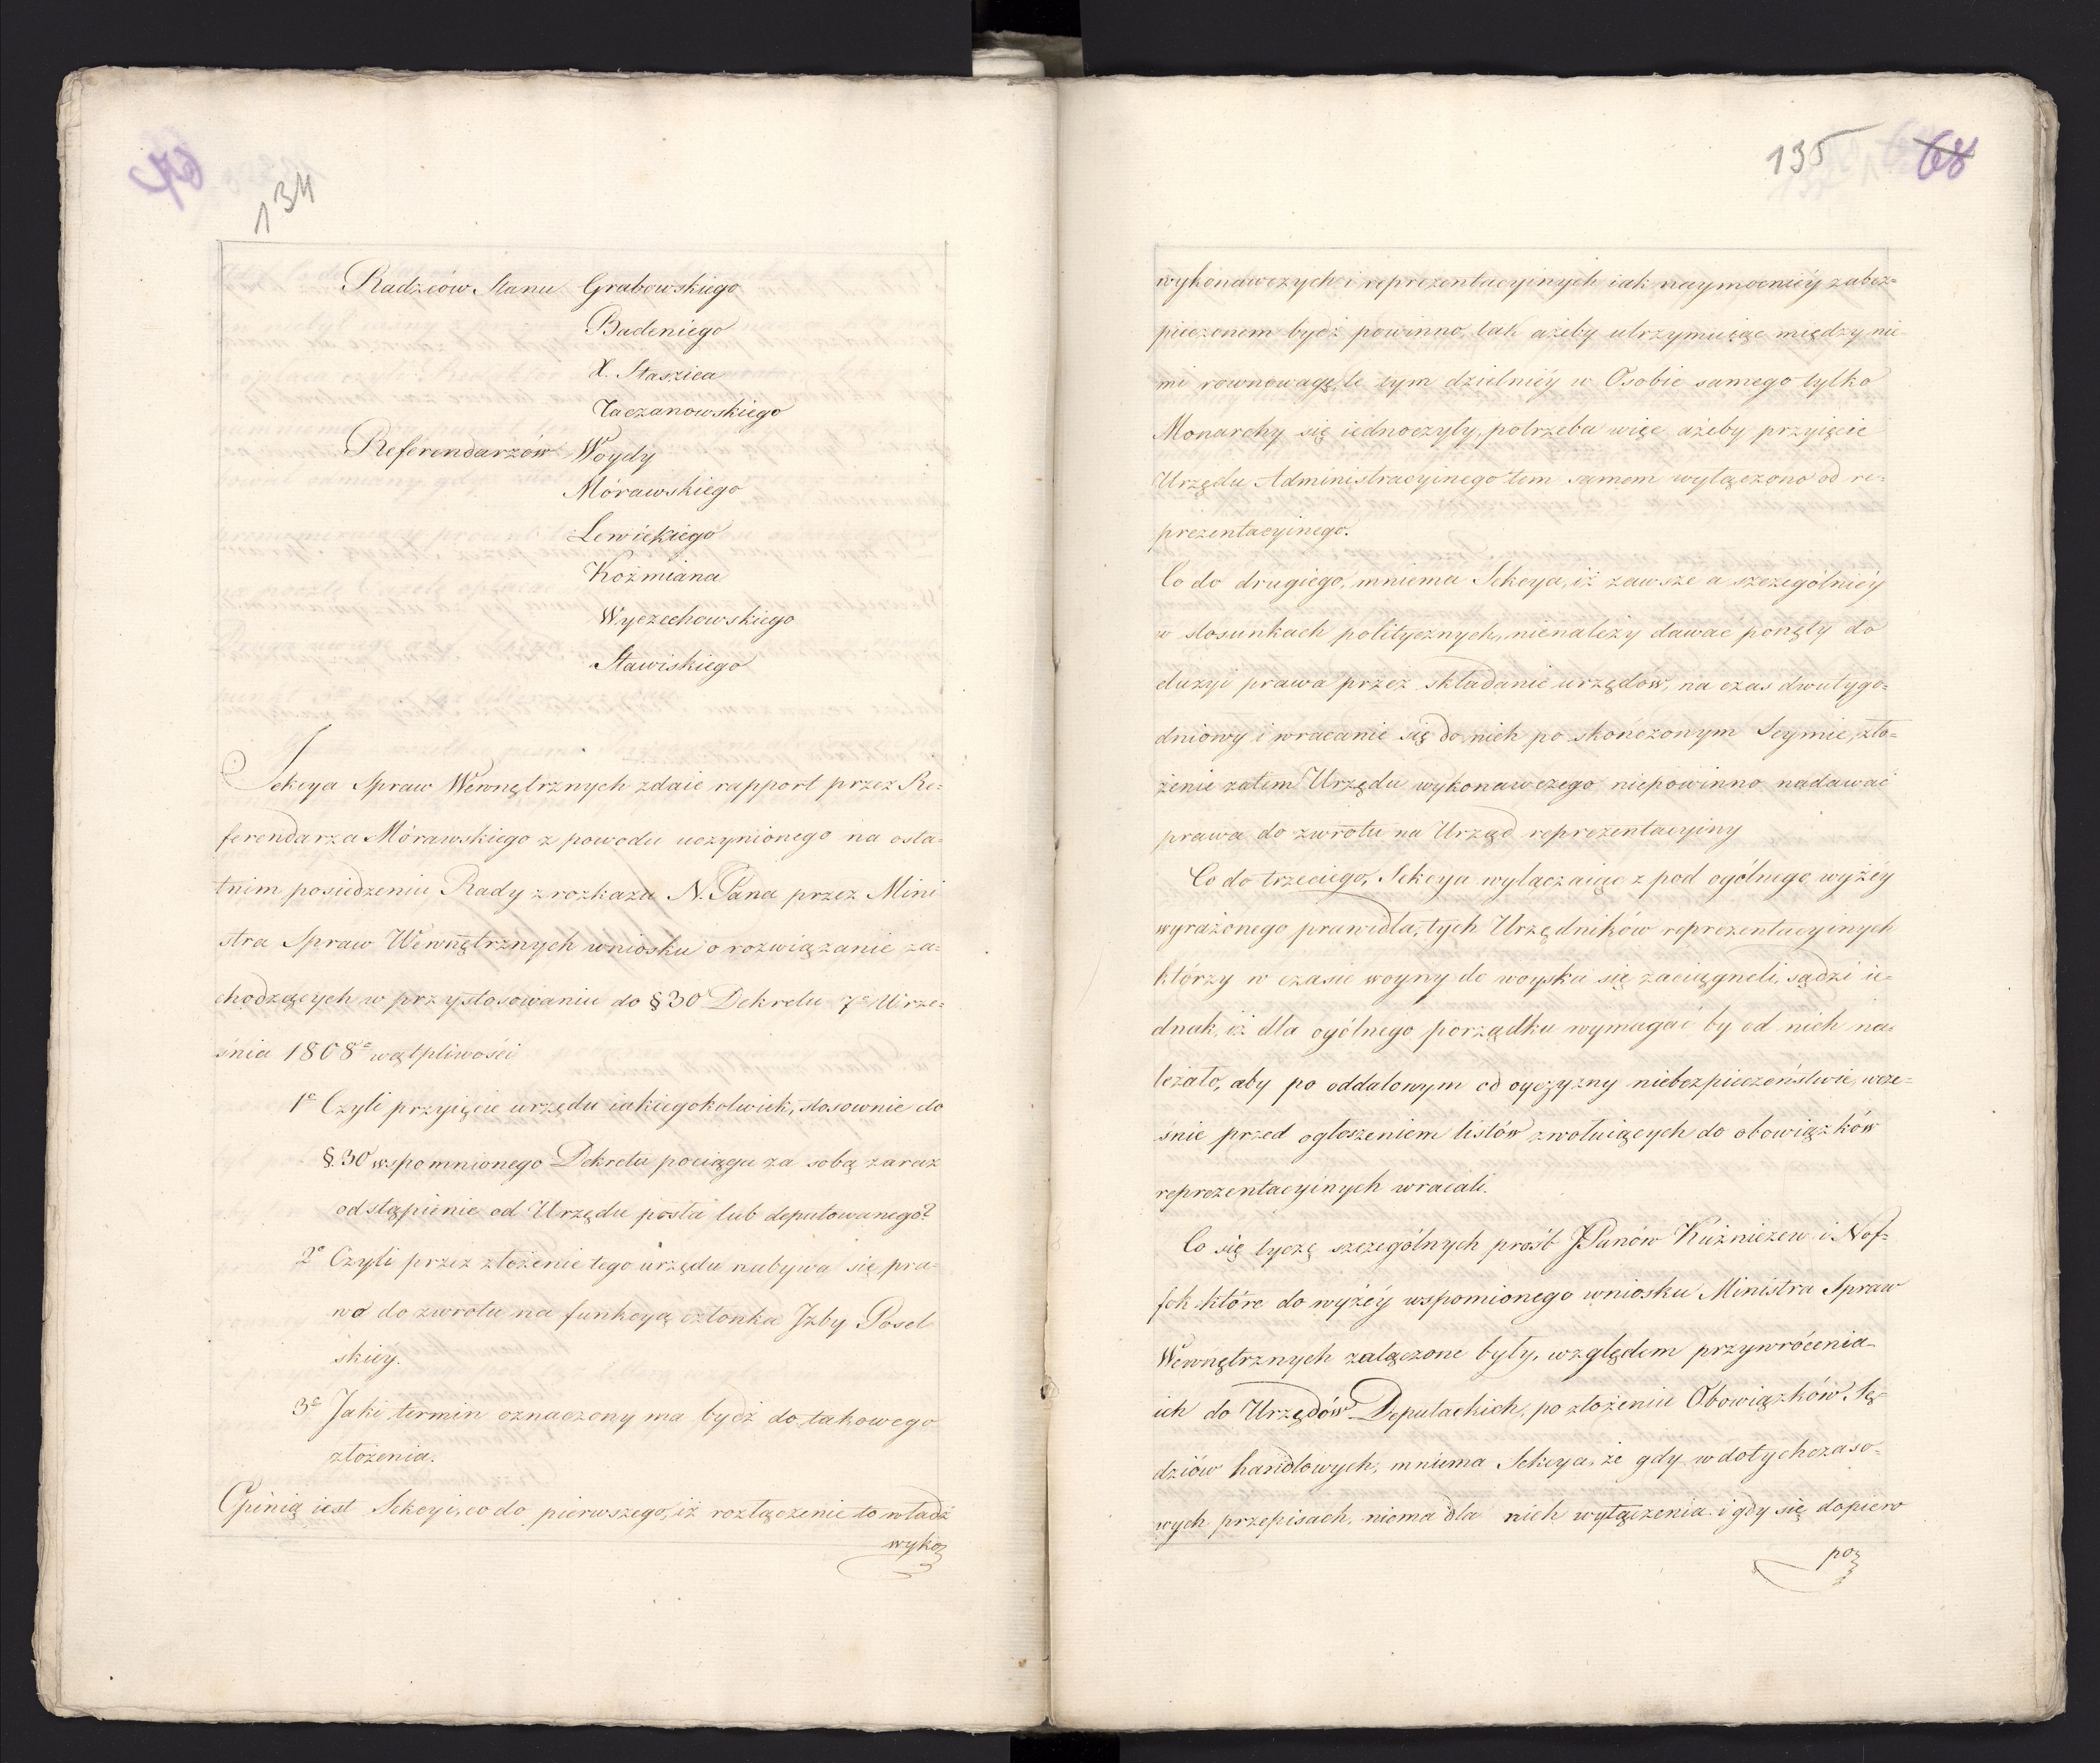 134
Radzców Stanu Grabowskiego
Badeniego
X. Staszica
Taczanowskiego
Referendarzów Woydy
Mórawskiego
Lewickiego
Koźmiana
Wyczechowskiego
Stawiskiego
Sekcya Spraw Wewnętrznych zdaie rapport przez Re=
ferendarza Mórawskiego z powodu uczynionego na osta=
tnim posiedzeniu Rady z rozkazu N. Pana przez Mini
stra Spraw Wewnętrznych wniosku o rozwiązanie za=
chodzących w przystosowaniu do § 30 Dekretu 7º Wrze=
śnia 1808º wątpliwości
1º Czyli przyięcie urzędu iakiegokolwiek, stosownie do
§. 30 wspomnionego Dekretu pociąga za sobą zaraz
odstąpienie od Urzędu posła lub deputowanego?
2º Czyli przez złożenie tego urzędu nabywa się pra=
wo do zwrotu na funkcyą członka Jzby Posel
skiéy.
3º Jaki termin oznaczony ma bydź do takowego
złożenia.
Opinią iest Sekcyi, co do pierwszego, iż rozłączenie to władz
wyko
135 68
wykonawczych i reprezentacyinych iak naymocniéy zabez=
pieczonem bydź powinno, tak ażeby utrzymuiąc między nie
mi rownowagę, te tym dzielniéy w Osobie samego tylko
Monarchy się iednoczyły, potrzeba więc ażeby przyięcie
Urzędu Administracyinego tem samem wyłączono od re=
prezentacyinego.
Co do drugiego, mniema Sekcya, iż zawsze a szczególniéy
w stosunkach politycznych, nienależy dawać ponęty do
eluzyi prawa przez składanie urzędów, na czas dwutygo=
dniowy i wracanie się do nich po skończonym Seymie, zło=
żenie zatem Urzędu wykonawczego niepowinno nadawać
prawa do zwrotu na Urząd reprezentacyiny
Co do trzeciego, Sekcya wyłączaiąc z pod ogólnego wyżéy
wyrażonego prawidła, tych Urzędników reprezentacyinych
którzy w czasie woyny do woyska się zaciągneli, sądzi ie=
dnak, iż dla ogólnego porządku wymagać by od nich na=
leżało, aby po oddalonym od oyczyzny niebezpieczeństwie, wcze=
śnie przed ogłoszeniem listów zwołuiących do obowiązków
reprezentacyinych wracali.
Co się tyczę szczególnych prośb JPanów Kuźniczew i Nof=
fok które do wyżéy wspomionego wniosku Ministra Spraw
Wewnętrznych załączone były, względem przywrócenia
ich do Urzędów Deputackich, po złożeniu Obowiązków Sę=
dziów handlowych, mniema Sekcya, że gdy w dotychczaso=
wych przepisach, niema dla nich wyłączenia i gdy się dopiero
po